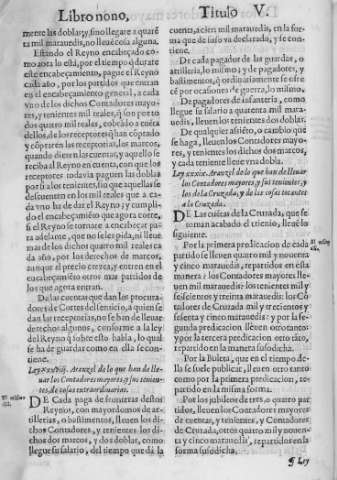 Libro nono,
Titulo V.
mente las doblas, y sino llegare a quarẽ
ta mil marauedis, no lleue cosa alguna.
Estando el Reyno encabeçado co-
mo aora lo está, por el tiempo q̃ durare
este encabeçamiento, pague el Reyno
cada año, por los partidos que entran
en el encabeçamiento general, a cada
vno de los dichos Contadores mayo-
res, y tenientes mil reales, q̃ son por to
dos quatro mil reales, cobrãdo a cuẽta
dellos, de los receptores q̃ han cõptado
y cõpraren las receptorias, los marcos,
quando dieren las cuentas, y aquello se
reciba al Reyno en cuenta, con que los
receptores todavia paguen las doblas
por si a los tenientes, sin que aquellas se
descuenten en los mil reales que a ca-
da vno ha de dar el Reyno: y cumpli-
do el encabeçamiẽto que agora corre,
si el Reyno se tornare a encabeçar pa-
ra adelante, que no se les pida, ni lleue
mas de los dichos quatro mil reales ca
da año, por los derechos de marcos,
aunque al precio crezca, y entren en el
encabeçamiento otros mas partidos de
los que agora entran.
Dalas cuentas que dan los procura-
dores de Cortes del seruicio, a quien se
dan las receptorias, no se han de lleuar
derechos algunos, conforme a la ley
del Reyno q̃ sobre esto habla, lo qual
se ha de guardar como en ella se con-
tiene.
Ley xxxiiij. Aranzel de lo que han de lle-
uar los Contadores mayores, y sus tenien-
tes, de cosas extraordinarias.
DE Cada paga de fronteras destos
Reynos, con mayordomos de ar-
tilleria, o bastimentos, lleuen los di-
chos Contadores, y tenientes los di-
chos dos marcos, y dos doblas, como
llegue su salario, del tiempo que dà la
cuenta, a cien mil marauedis, en la for-
ma que de suso va declarada, y se con-
tiene.
De cada pagador de las guardas, o
artilleria, lo mismo; y de pagadores, y
bastimentos, q̃ ordinariamente se ofre
cẽ por ocasiones de guerra, lo mismo.
De pagador de infanteria, como
llegue su salario a quarenta mil mara-
uedis, lleuen los tenientes dos doblas.
De qualquier assiẽto, o cambio que
se haga, lleuen los Contadores mayo-
res, y tenientes los dichos dos marcos,
y cada teniente lleue vna dobla.
Ley xxxix. Aranzel de lo que han de lleuar
los Contadores mayores, y sus tenientes, y
los de la Cruzada, y de las cosas tocantes
a la Cruzada.
DE Las cuẽtas de la Cruzada, que se
toman acabado el trienio, lleuẽ lo
siguiente.
Por la primera predicacion de cada
partido se lleuen quatro mil y nouenta
y cinco marauedis, repartidos en esta
manera: los Contadores mayores lle-
uen mil marauedis: los tenientes mil y
setenta marauedis: los Contado-
res de Cruzada mil y trecientos y
sesenta y cinco marauedis: y por la se-
gunda predicacion lleuen otro tanto:
y por la tercera predicacion otro tanto,
repartido en la manera susodicha.
Por la Buleta, que en el tiempo de-
lla se suele publicar, lleuen otro tanto
como por la primera predicacion, re-
partido en la misma forma.
Por los jubileos de tres, o quatro par
tidos, lleuen los Contadores mayores
de cuentas, y tenientes, y Contadores
de Cruzada, otros quatro mil y nouen-
ta y cinco marauedis, repartidos en la
forma susodicha.
¶ Ley